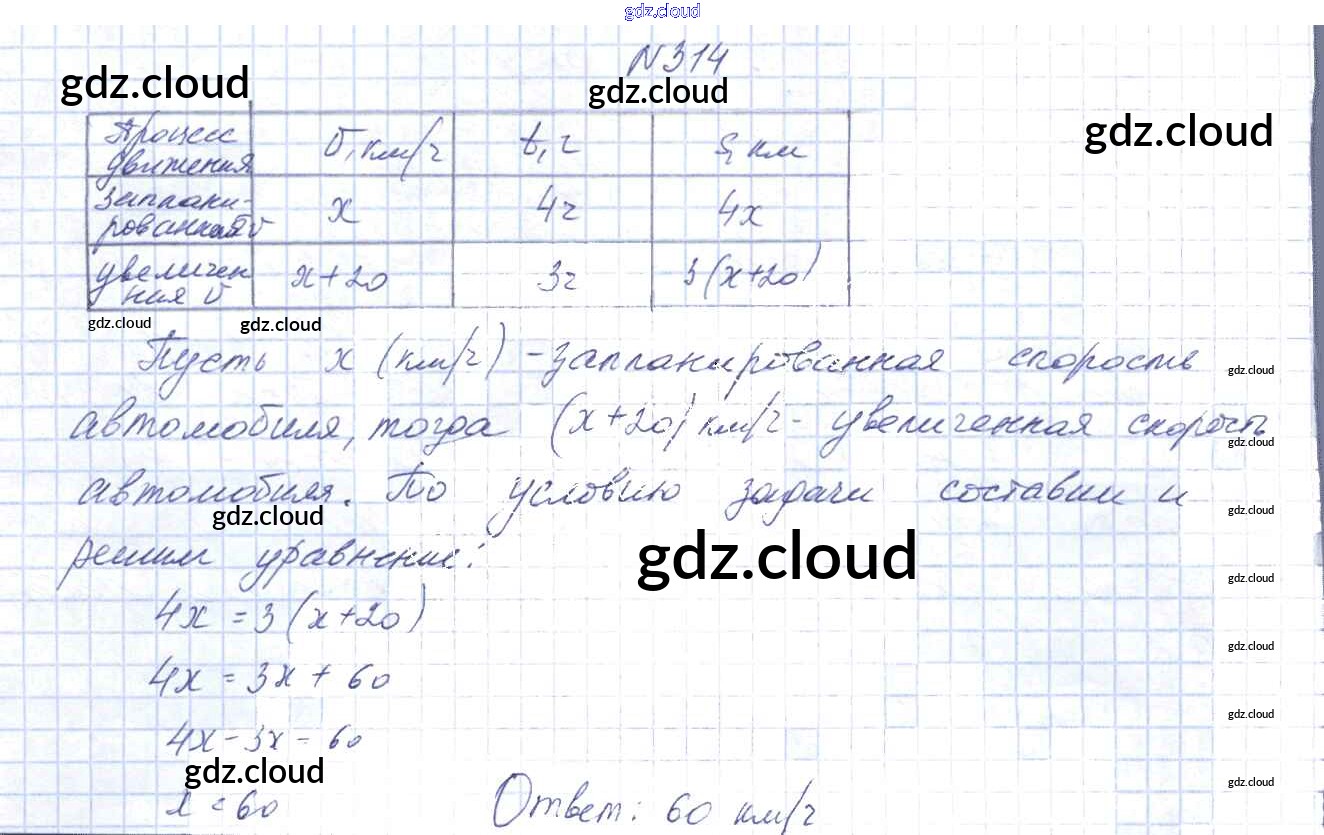 gdz.cloud
N314
gdz.cloud
gdz.cloud
gdz.cloud
Процесс движения | v, км/ч | t, ч | S, км
запланированная v | x | 4ч | 4x
увеличенная v | x+20 | 3ч | 3(x+20)
gdz.cloud
gdz.cloud
Пусть x (км/ч) - запланированная скорость
gdz.cloud
автомобиля, тогда (x+20) км/ч - увеличенная скорость
gdz.cloud
автомобиля. По условию задачи составим и
gdz.cloud
gdz.cloud
решим уравнение:
gdz.cloud
gdz.cloud
4x = 3(x+20)
gdz.cloud
4x = 3x + 60
gdz.cloud
4x - 3x = 60
gdz.cloud
gdz.cloud
x = 60
Ответ: 60 км/ч